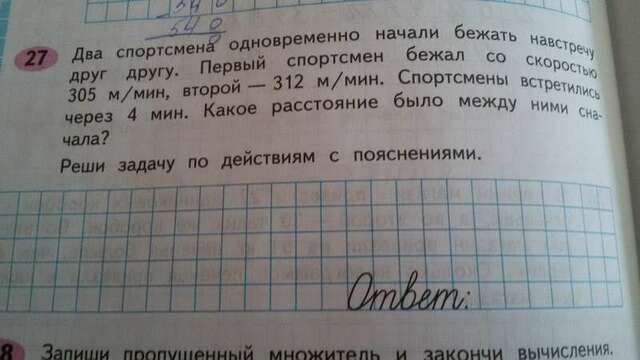 540
540
0
27 Два спортсмена одновременно начали бежать навстречу
друг другу. Первый спортсмен бежал со скоростью
305 м/мин, второй — 312 м/мин. Спортсмены встретились
через 4 мин. Какое расстояние было между ними сна-
чала?
Реши задачу по действиям с пояснениями.
Ответ:
8 Запиши пропущенный множитель и закончи вычисления.